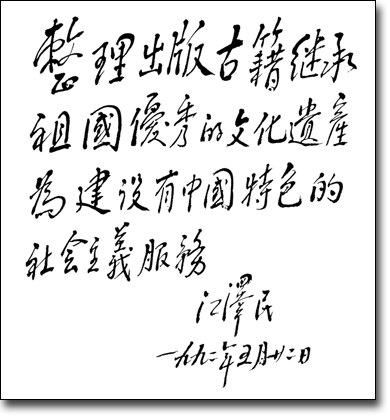 整理出版古籍继承
祖國優秀的文化遺產
為建设有中國特色的
社会主義服務
江澤民
一九九二年五月廿二日